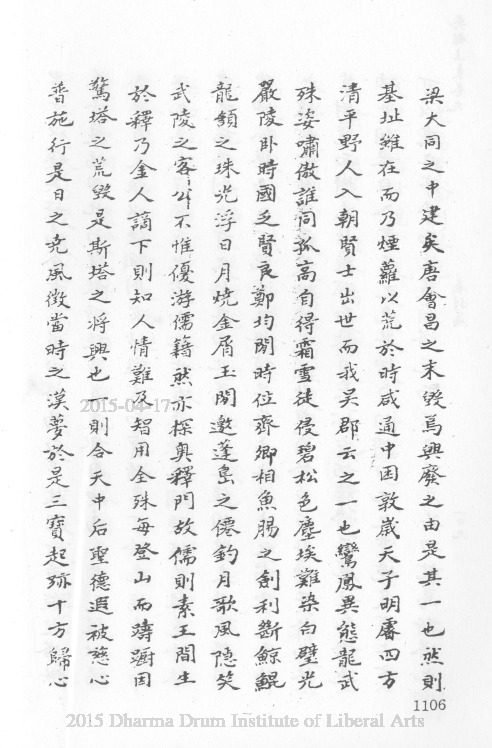 梁大同之中建矣唐會昌之末毀焉興廢之由是其一也然則
基址雖在而乃煙蘿以荒於時咸通中困敦歲天子明庸四方
清平野人入朝賢士出世而我吴郡云之一也鸞鳳異態龍武
殊姿嘯傲誰同孤高自得霜雪徒侵碧松色塵埃難染白璧光
嚴陵卧時國乏賢良鄭均閑時位齊卿相魚腸之劍利斷鯨鯤
龍頷之珠光浮日月燒金屑玉閑邀蓬島之僊釣月歌風隱笑
武陵之客公不惟優游儒籍然亦探奥釋門故儒則素王間生
於釋乃金人謫下則知人情難及智用全殊每登山而躊躕因
驚塔之荒毀是斯塔之将興也一則合天中后聖德遐被慈心
普施行是日之尭風徴當時之漢夢於是三寶起弥十方歸心
1106
2015-04-17
2015 Dharma Drum Institute of Liberal Arts